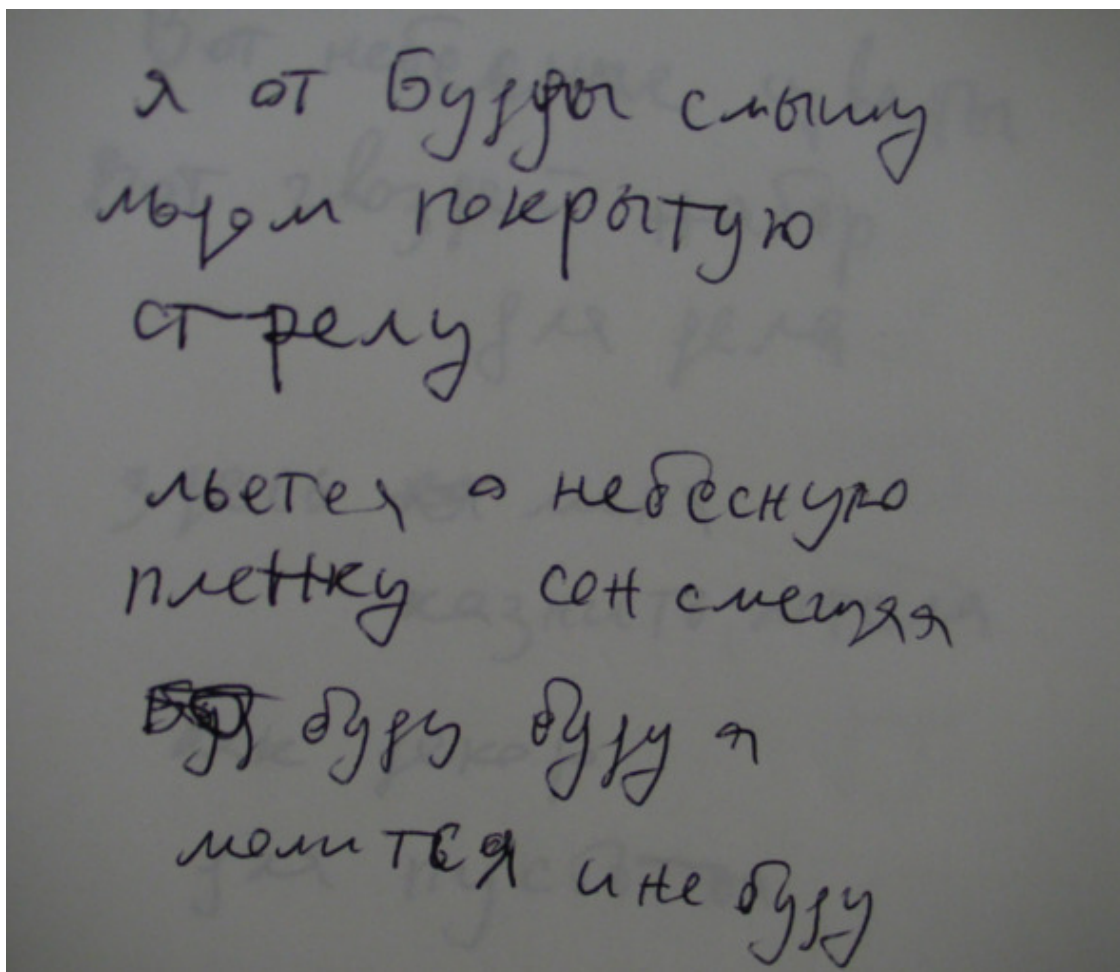 я от Будды слышу
льдом покрытую
стрелу
льется о небесную
пленку сон смещая
буду буду я
молится и не буду